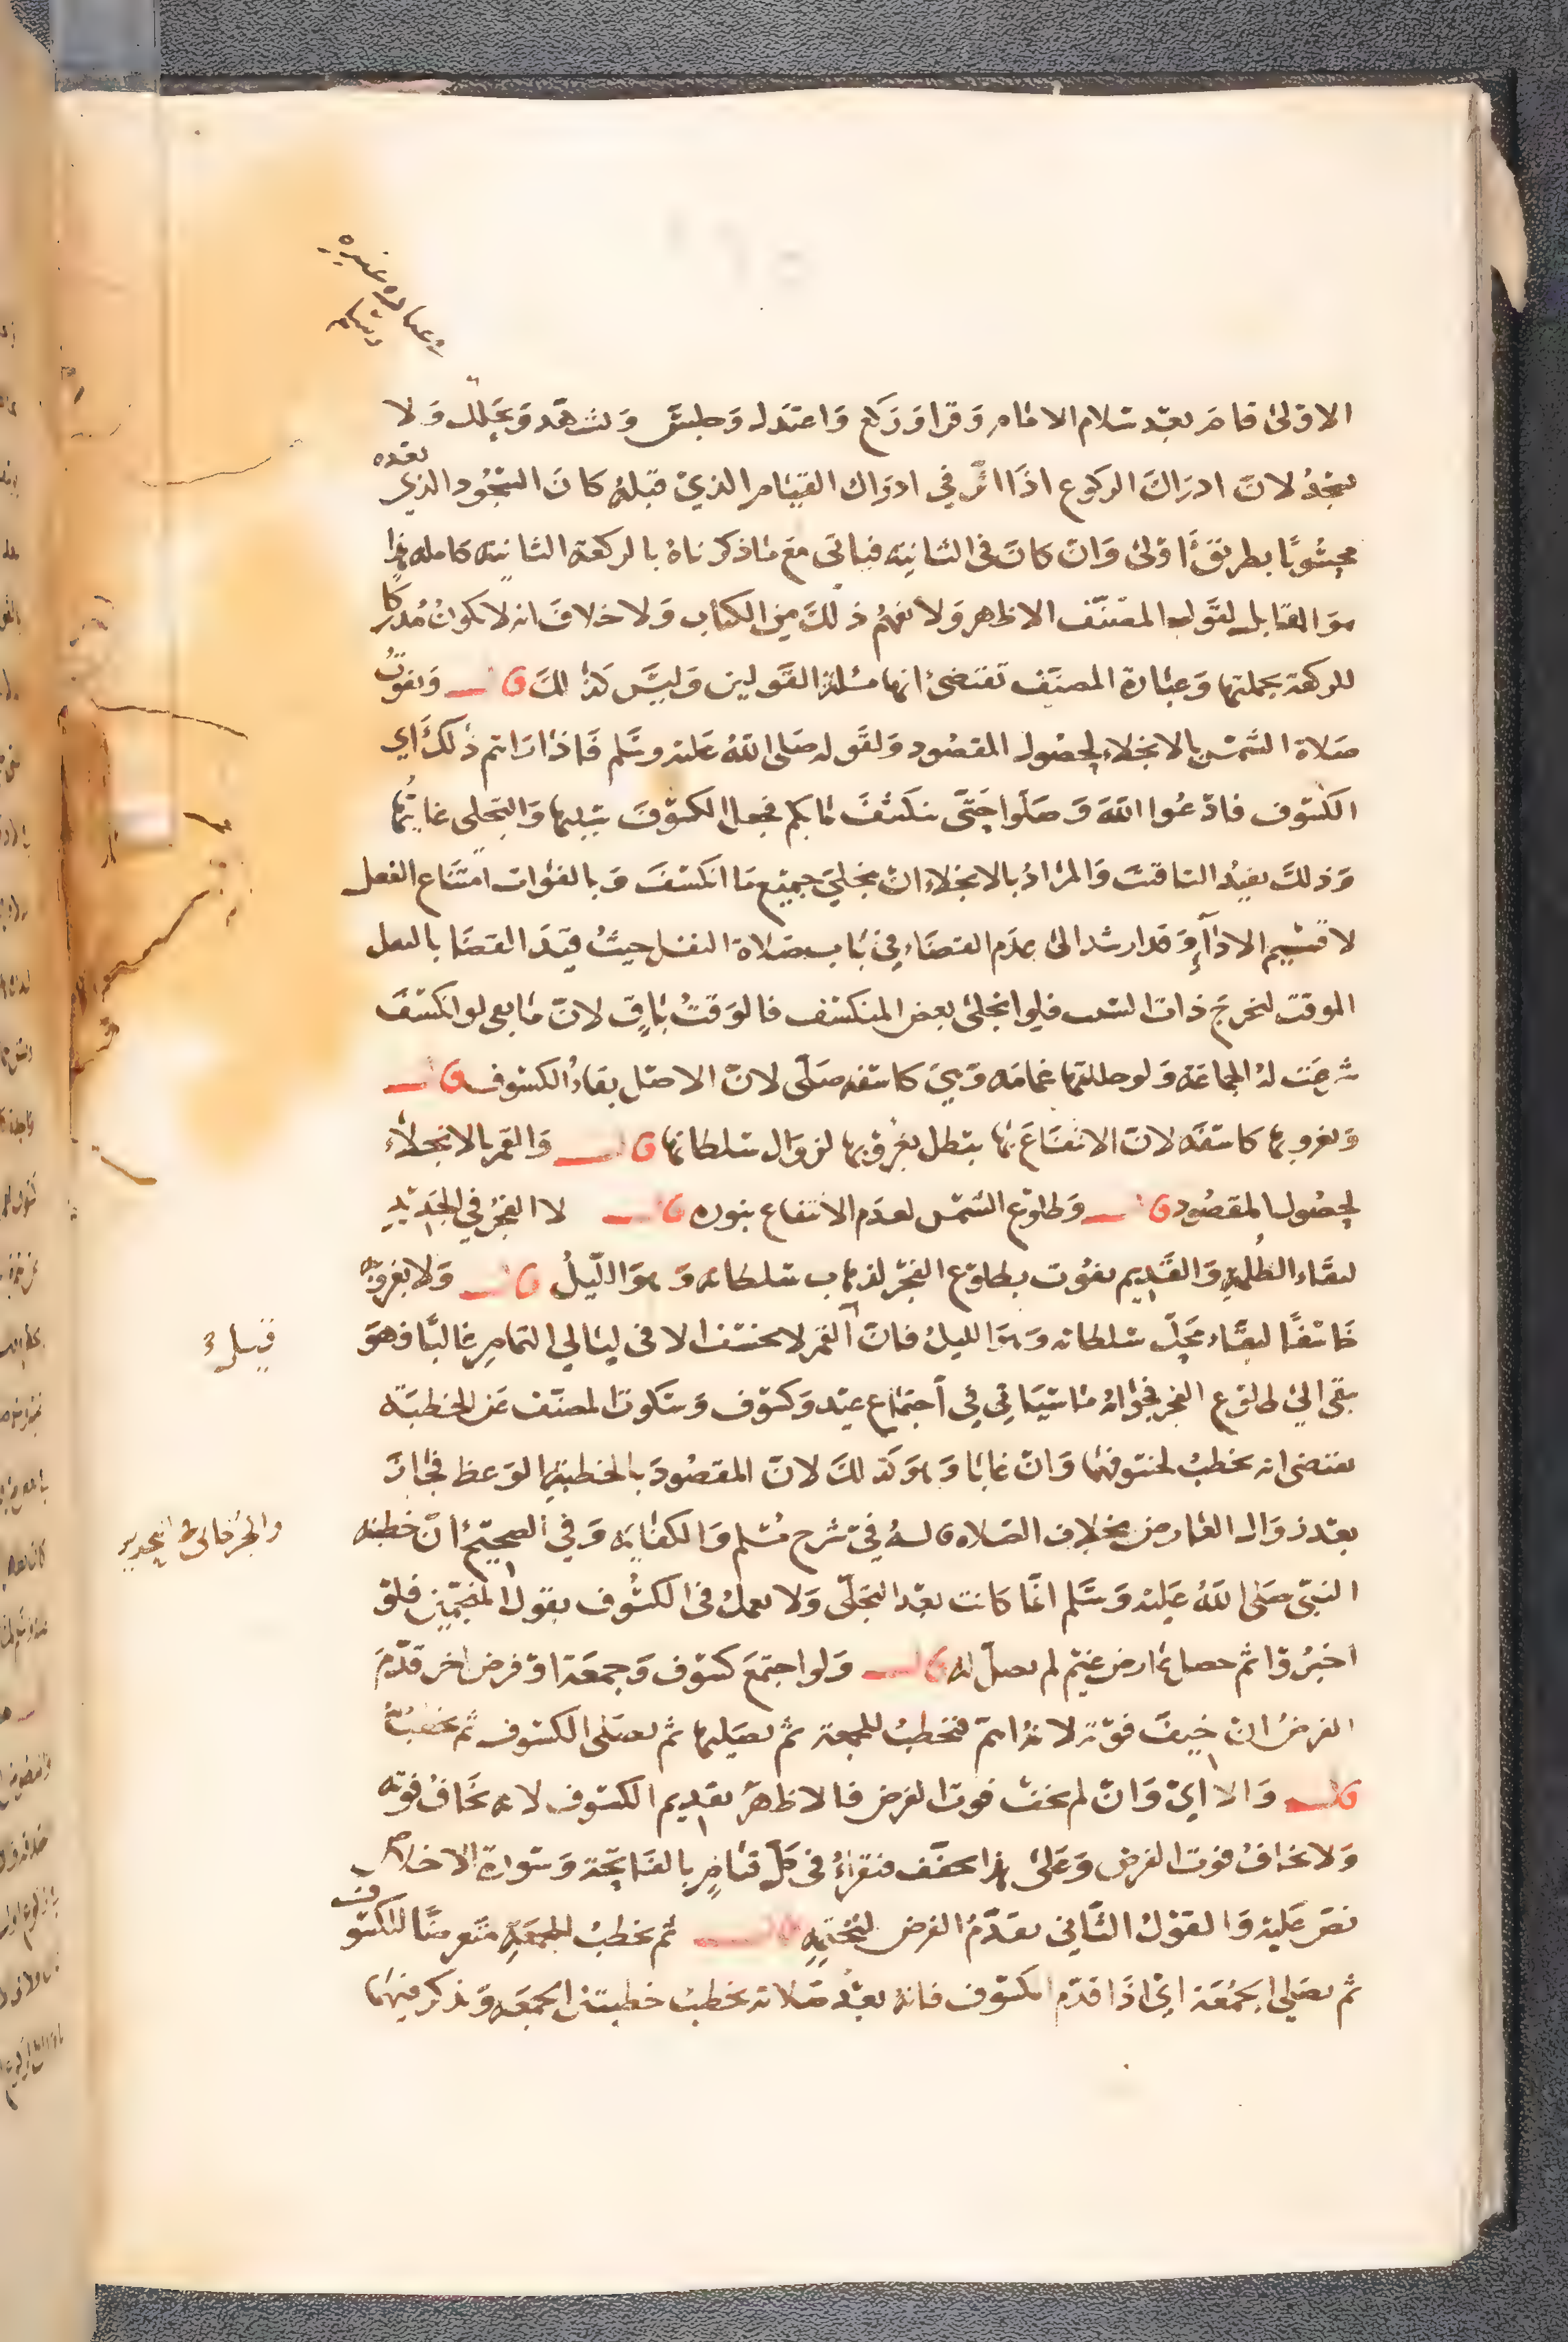 الاولى قام بعد سلام الامام وقرا وركع واعتدل وجلس وتشهد وتحلل ولا
يسجد لان ادراك الركوع اذا اثر في ادراك القيام الذي قبله كان السجود الذي بعده
محسوبًا بطريق اولى وان كان في الثانيه فياتي مع ما ذكرناه بالركعة الثانية كامله هذا
هو المقابل لقول المصنف الاظهر ولا يفهم ذلك من الكتاب ولا خلاف انه لا يكون مدركا
للركعة بجملتها وعبارة المصنف تقتضي انها مسلة القولين وليس كذلك قال وتفوت
صلاة الشمس بالانجلاء لحصول المقصود ولقوله صلى الله عليه وسلم فاذا رايتم ذلك اي
الكسوف فادعوا الله وصلوا حتى ينكشف ما بكم فجعل الكسوف سببها والتجلي غايتها
وذلك يفيد التاقيت والمراد بالانجلاء ان ينجلي جميع ما انكسف وبالفوات امتناع الفعل
لا قسيم الاداء وقد ارشد الى عدم القضاء في باب صلاة النفل حيث قيد القضا بالنفل
الموقت لتخرج ذات السبب فلو انجلى بعض المنكسف فالوقت باق لان ما بقي لو انكسف
شرعت له الجماعة ولو حللتها غمامه وهي كاسفه صلى لان الاصل بقاء الكسوف قال
وبغروبها كاسفه لان الانتفاع بها يبطل بغروبها لزوال سلطانها قال والقمر بالانجلاء
لحصول المقصود قال وطلوع الشمس لعدم الانتفاع بنوره قال لا الفجر في الجديد
لبقاء الظلمة والقديم يفوت بطلوع الفجر لذهاب سلطانه وهو الليل قال ولا بغروبه
خاسفًا لبقاء محل سلطانه وهو الليل فان القمر لا يخسف الا في ليالي التمام غالبًا فهو
يبقى الى طلوع الفجر فجوابه ما سياتي في اجتماع عيد وكسوف وسكوت المصنف عن الخطبة
يقتضي انه يخطب لخسوفها وان غابا وهو كذلك لان المقصود بالخطبة الوعظ فجاز
بعد زوال العارض بخلاف الصلاة قاله في شرح مسلم والكفاية وفي الصحيح ان خطبه
النبي صلى الله عليه وسلم انما كانت بعد التجلي ولا يعمل في الكسوف بقول المنجمين فلو
اخبروا ثم حصل عارض غيم لم يصل له قال ولو اجتمع كسوف وجمعة او فرض اخر قدم
الفرض ان خيف فوته لانه اهم فيخطب للجمعة ثم يصليها ثم يصلى الكسوف ثم يخطب
قال والا اي وان لم يخف فوت الفرض فالاظهر تقديم الكسوف لانه يخاف فوته
ولا يخاف فوت الفرض وعلى هذا يخفف فيقراء في كل قيام بالفاتحة وسورة الاخلاص
نص عليه والقول الثاني يقدم الفرض لتحتمه قال ثم يخطب للجمعة متعرضًا للكسوف
ثم يصلي الجمعة اي اذا قدم الكسوف فانه بعد صلاته يخطب خطبتي الجمعه ويذكر فيهما